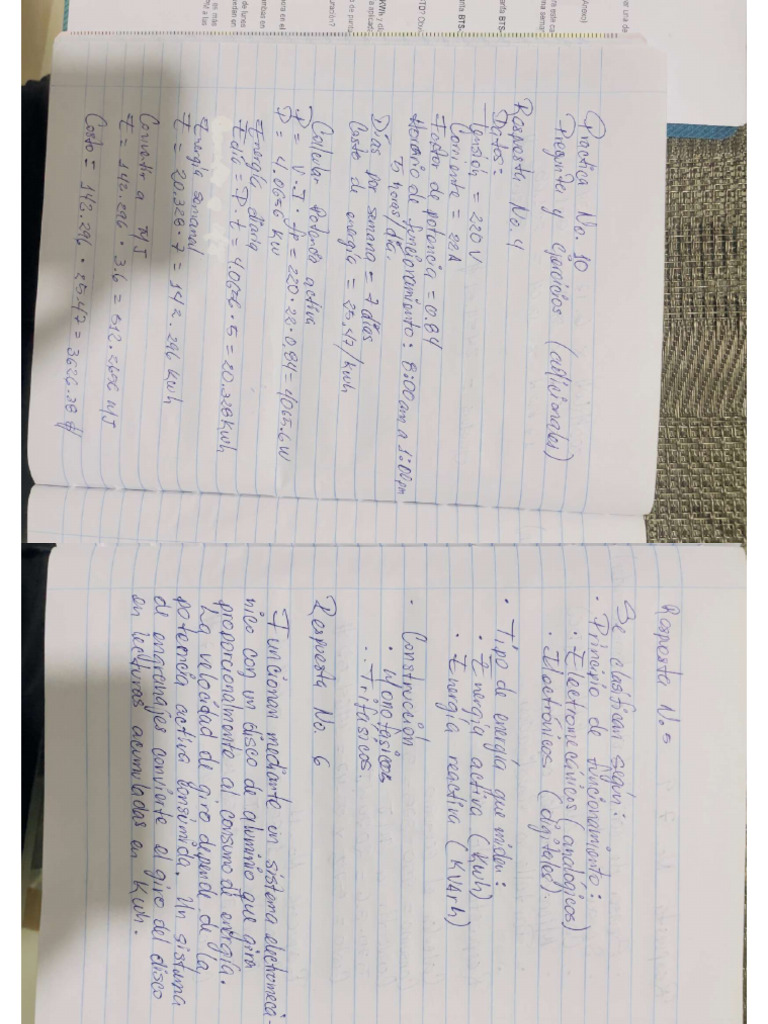 Practica No. 10
Preguntas y ejercicios (adicionales)
Respuesta No. 4
Datos:
Tensión = 220 V
Corriente = 22 A
Factor de potencia = 0.84
Horario de funcionamiento: 8:00am a 1:00pm
5 horas/día.
Días por semana = 7 días
Costo de energía = 25.47/kwh
Calcular Potencia activa
P = V·I·fp = 220·22·0.84 = 4065.6 W
P = 4.0656 kw
Energía diaria
Edia = P·t = 4.0656·5 = 20.328 kwh
Energía semanal
E = 20.328·7 = 142.296 kwh
Convertir a MJ
E = 142.296·3.6 = 512.2656 MJ
Costo = 142.296·25.47 = 3624.28
Respuesta No. 5
Se clasifican según:
· Principio de funcionamiento:
· Electromecánicos (analógicos)
· Electrónicos (digitales).
· Tipo de energía que miden:
· Energía activa (kwh)
· Energía reactiva (KVArh)
· Construcción
· Monofásicos
· Trifásicos.
Respuesta No. 6
Funcionan mediante un sistema electromecá-
nico con un disco de aluminio que gira
proporcionalmente al consumo de energía.
La velocidad de giro depende de la
potencia activa consumida. Un sistema
de engranajes convierte el giro del disco
en lecturas acumuladas en Kwh.